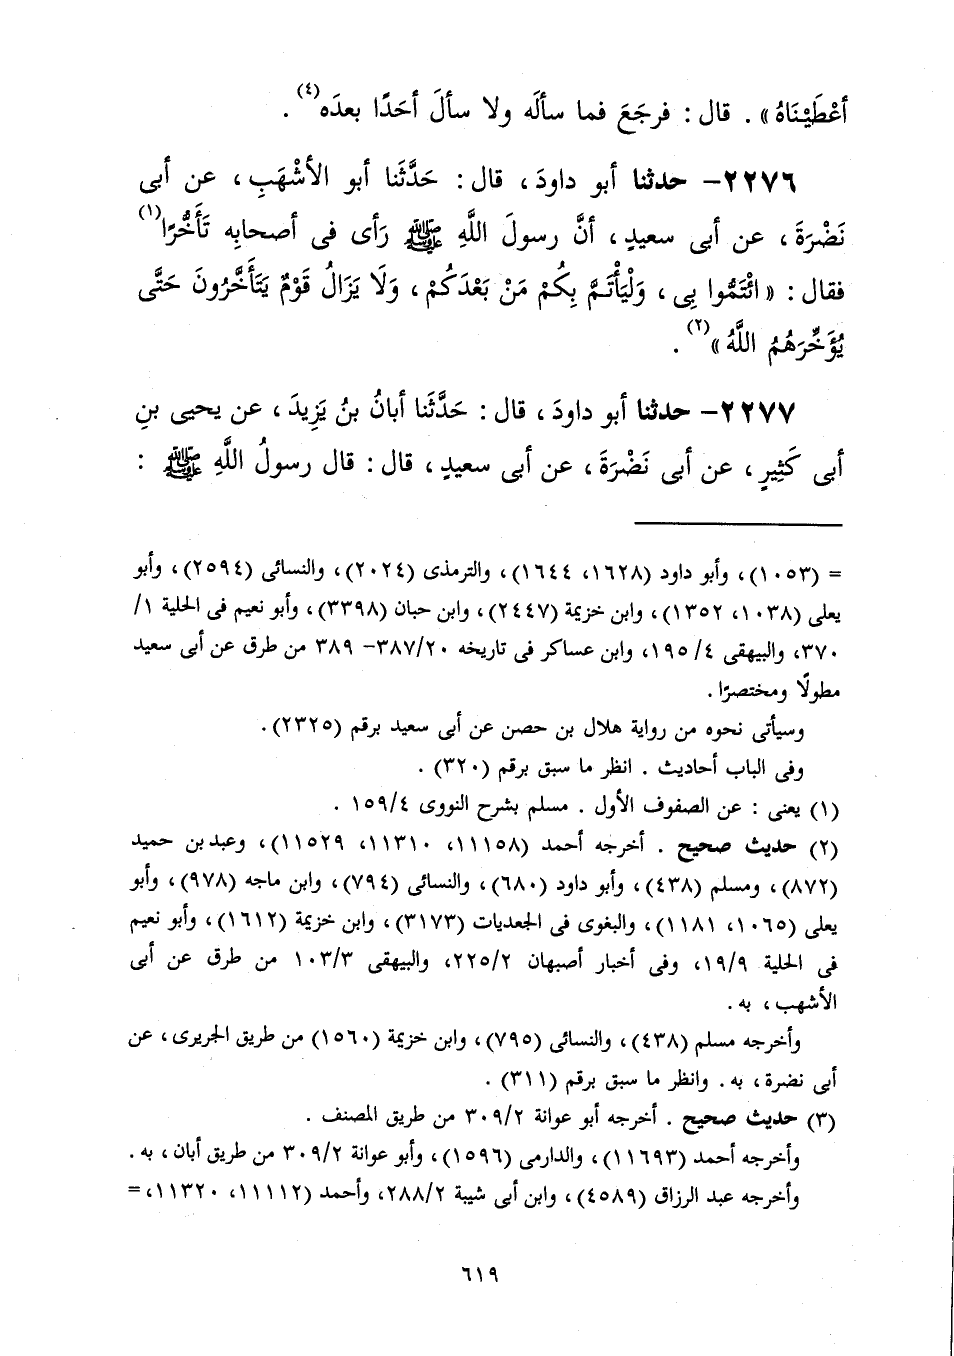 أعْطَيْنَاهُ» . قال : فرجَعَ فما سألَه ولا سألَ أحَدًا بعدَه(٤) .
٢٢٧٦- حدثنا أبو داودَ ، قال : حَدَّثَنا أبو الأشْهَبِ ، عن أبى
نَضْرَةَ ، عن أبى سعيدٍ ، أنَّ رسولَ اللَّهِ ﷺ رَأى فى أصحابِه تَأَخُّرًا(١)
فقال : « ائْتَمُّوا بِى ، وَلْيَأْتَمَّ بِكُمْ مَنْ بَعْدَكُمْ ، وَلَا يَزَالُ قَوْمٌ يَتَأَخَّرُونَ حَتَّى
يُؤَخِّرَهُمُ اللَّهُ »(٢) .
٢٢٧٧- حدثنا أبو داودَ ، قال : حَدَّثَنا أبانُ بنُ يَزِيدَ ، عن يحيى بنِ
أبى كَثِيرٍ ، عن أبى نَضْرَةَ ، عن أبى سعيدٍ ، قال : قال رسولُ اللَّهِ ﷺ :
= (١٠٥٣) ، وأبو داود (١٦٢٨، ١٦٤٤) ، والترمذى (٢٠٢٤) ، والنسائى (٢٥٩٤) ، وأبو
يعلى (١٠٣٨، ١٣٥٢) ، وابن خزيمة (٢٤٤٧) ، وابن حبان (٣٣٩٨) ، وأبو نعيم فى الحلية ١/
٣٧٠، والبيهقى ٤/ ١٩٥، وابن عساكر فى تاريخه ٢٠/ ٣٨٧- ٣٨٩ من طرق عن أبى سعيد
مطولًا ومختصرًا .
وسيأتى نحوه من رواية هلال بن حصن عن أبى سعيد برقم (٢٣٢٥) .
وفى الباب أحاديث . انظر ما سبق برقم (٣٢٠) .
(١) يعنى : عن الصفوف الأول . مسلم بشرح النووى ٤/ ١٥٩ .
(٢) حديث صحيح . أخرجه أحمد (١١١٥٨، ١١٣١٠، ١١٥٢٩) ، وعبد بن حميد
(٨٧٢) ، ومسلم (٤٣٨) ، وأبو داود (٦٨٠) ، والنسائى (٧٩٤) ، وابن ماجه (٩٧٨) ، وأبو
يعلى (١٠٦٥، ١١٨١) ، والبغوى فى الجعديات (٣١٧٣) ، وابن خزيمة (١٦١٢) ، وأبو نعيم
فى الحلية ٩/ ١٩، وفى أخبار أصبهان ٢/ ٢٢٥، والبيهقى ٣/ ١٠٣ من طرق عن أبى
الأشهب ، به .
وأخرجه مسلم (٤٣٨) ، والنسائى (٧٩٥) ، وابن خزيمة (١٥٦٠) من طريق الجريرى ، عن
أبى نضرة ، به . وانظر ما سبق برقم (٣١١) .
(٣) حديث صحيح . أخرجه أبو عوانة ٢/ ٣٠٩ من طريق المصنف .
وأخرجه أحمد (١١٦٩٣) ، والدارمى (١٥٩٦) ، وأبو عوانة ٢/ ٣٠٩ من طريق أبان ، به .
وأخرجه عبد الرزاق (٤٥٨٩) ، وابن أبى شيبة ٢/ ٢٨٨، وأحمد (١١١١٢، ١١٣٢٠، =
٦١٩